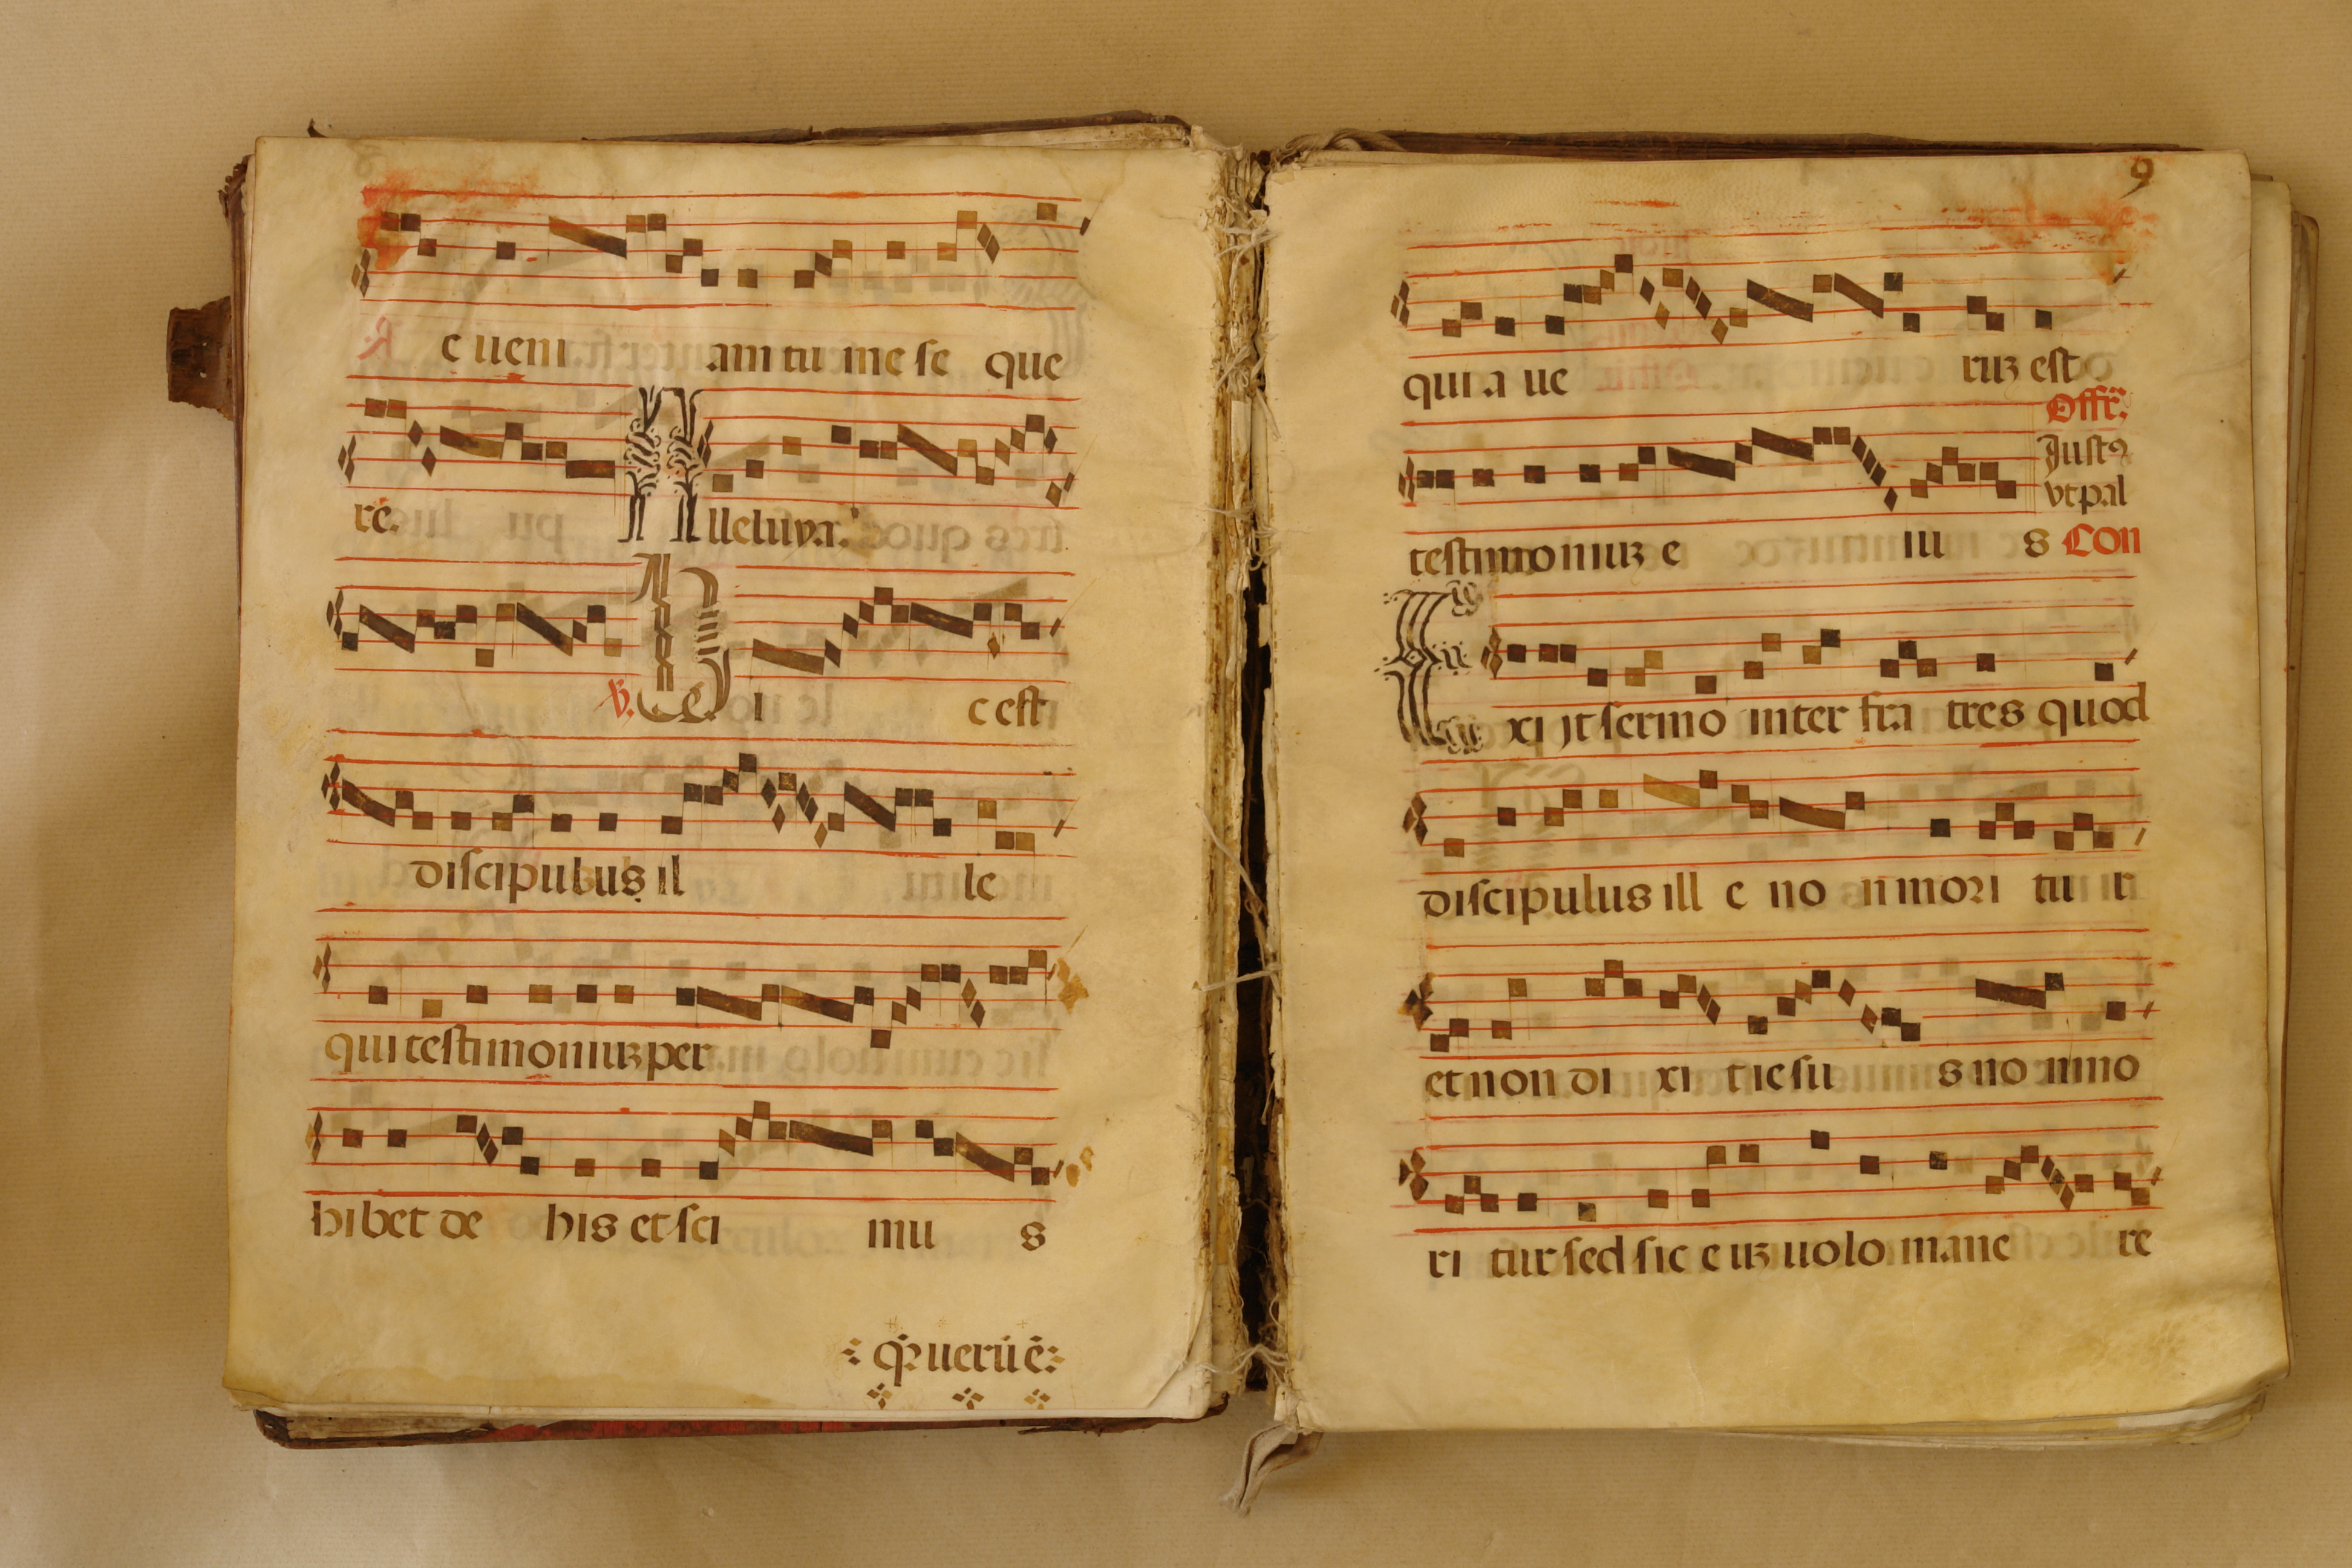 c ueni am tu me se que
re. A lleluya.
℣. H i c est
discipulus il le
qui testimoniuꝫ per
hibet de his et sci mu s
qꝛ uerū ē
9
qui a ue ruꝫ est
Offr̄.
Justꝯ
vt pal
testimoniuꝫ e iu s Con
E xi jt sermo inter fra tres quod
discipulus ill e no n mori tu r
et non di xi t iesu s no n mo
ri tur sed sic e uꝫ uolo mane re